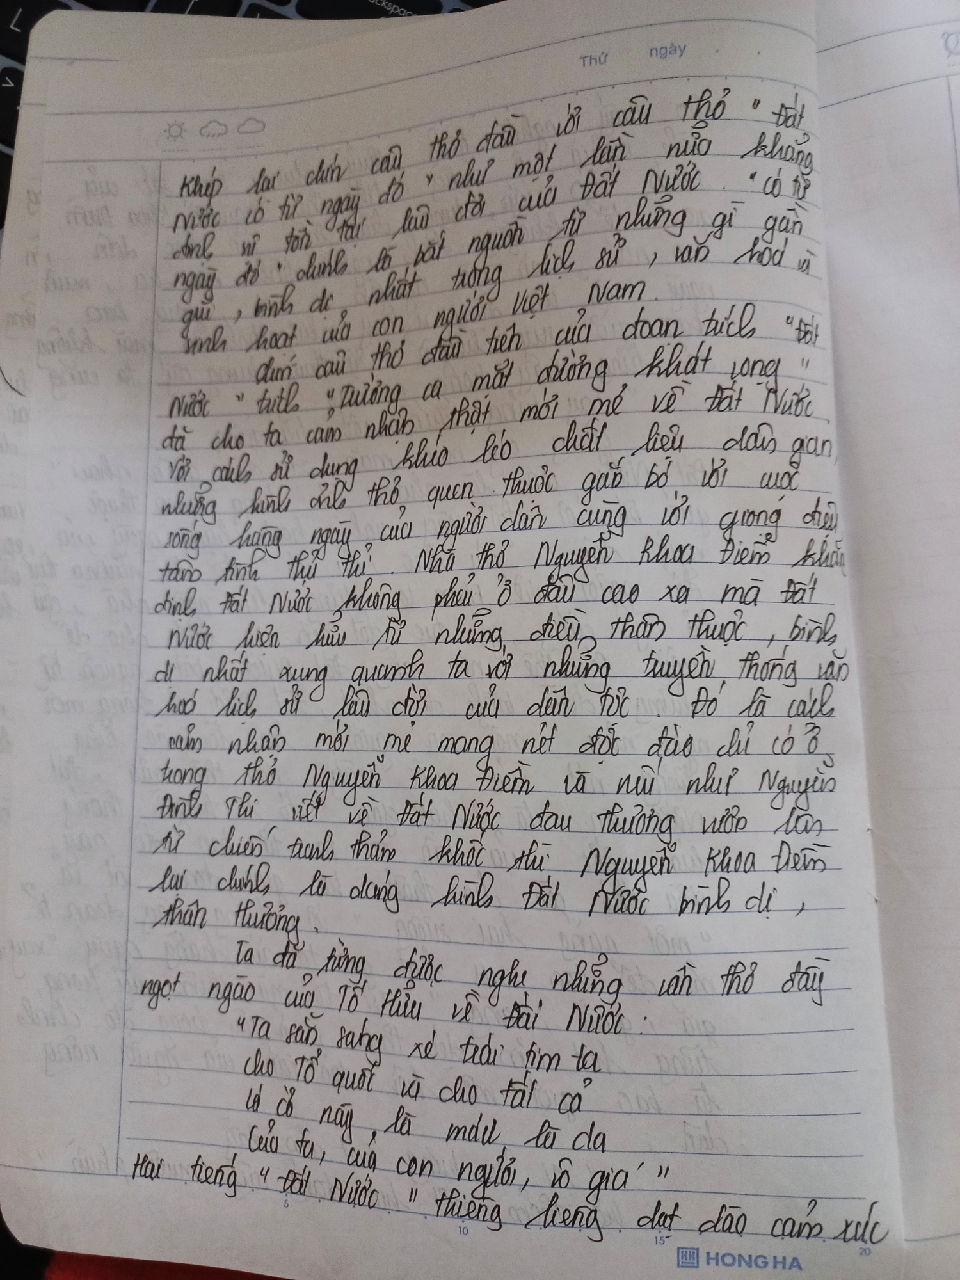 Thứ ngày
Khép lại chín câu thơ đầu với câu thơ "Đất
Nước có từ ngày đó" như một lần nữa khẳng
định sự tồn tại lâu đời của Đất Nước. "có từ
ngày đó" chính là bắt nguồn từ những gì gần
gũi, bình dị nhất trong lịch sử, văn hoá và
sinh hoạt của con người Việt Nam.
chín câu thơ đầu tiên của đoạn trích "Đất
Nước" trích "Trường ca mặt đường khát vọng"
đã cho ta cảm nhận thật mới mẻ về Đất Nước
Với cách sử dụng khéo léo chất liệu dân gian,
những hình ảnh thơ quen thuộc gắn bó với cuộc
sống hàng ngày của người dân cùng với giọng điệu
tâm tình thủ thỉ. Nhà thơ Nguyễn Khoa Điềm khẳng
định Đất Nước không phải ở đâu cao xa mà Đất
Nước hiện hữu từ những điều thân thuộc, bình
dị nhất xung quanh ta với những truyền thống văn
hoá lịch sử lâu đời của dân tộc. Đó là cách
cảm nhận mới mẻ mang nét độc đáo chỉ có ở
trong thơ Nguyễn Khoa Điềm và nếu như Nguyễn
Đình Thi viết về Đất Nước đau thương vươn lên
từ chiến tranh thảm khốc thì Nguyễn Khoa Điềm
lại chính là dáng hình Đất Nước bình dị,
thân thương.
Ta đã từng được nghe những vần thơ đầy
ngọt ngào của Tố Hữu về Đất Nước:
"Ta sẵn sàng xé trái tim ta
cho Tổ quốt và cho tất cả
Lá cờ này là máu là da
Của ta, của con người, vô giá"
Hai tiếng "Đất Nước" thiêng liêng dạt dào cảm xúc
5 10 15 20
HONG HA